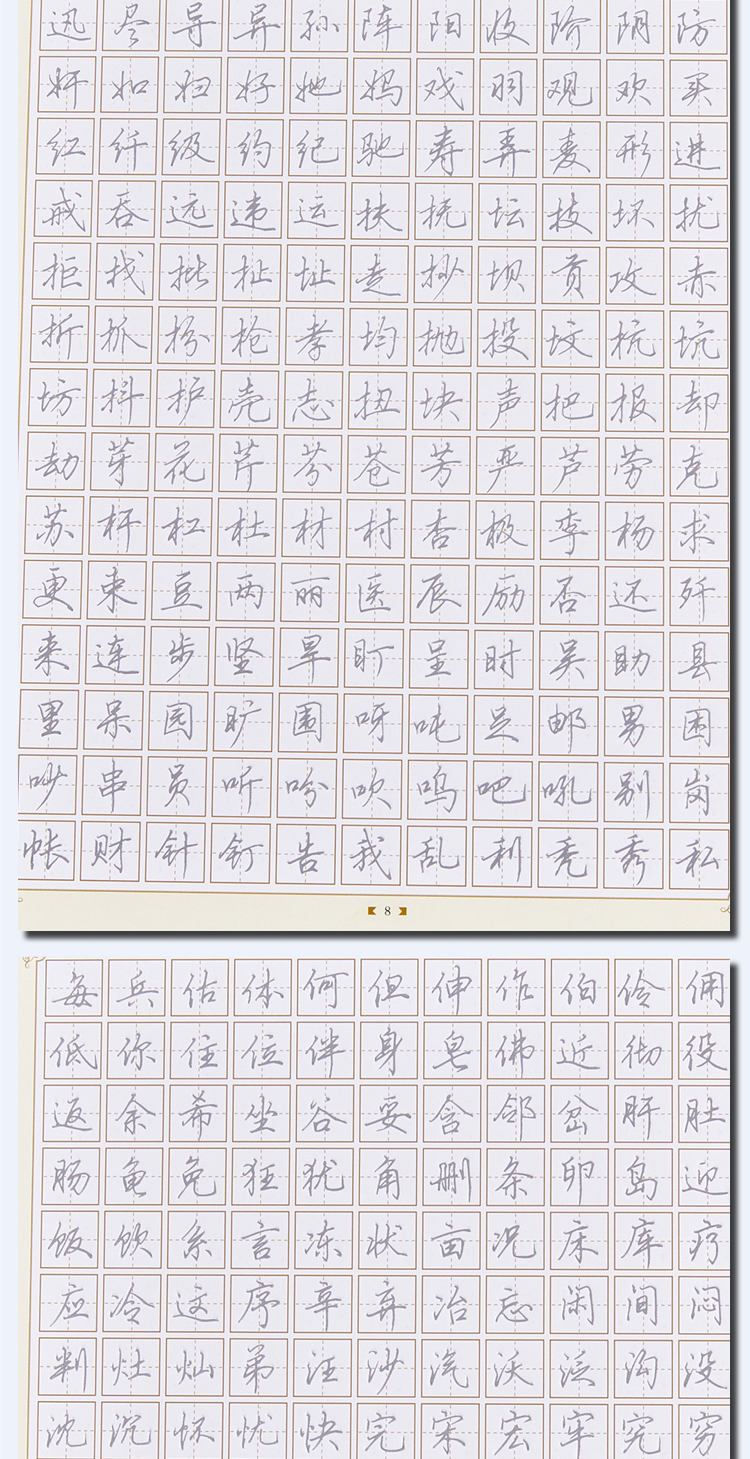 迅尽导异孙阵阳收阶阴防
奸如妇好她妈戏羽观欢买
红纤级约纪驰寿弄麦形进
戒吞远违运扶抚坛技坏扰
拒找批扯址走抄坝贡攻赤
折抓扮抢孝均抛投坟抗坑
坊抖护壳志扭块声把报却
劫芽花芹芬苍芳严芦劳克
苏杆杠杜材村杏极李杨求
更束豆两丽医辰励否还歼
来连步坚旱盯呈时吴助县
里呆园旷围呀吨足邮男困
吵串员听吩吹呜吧吼别岗
帐财针钉告我乱利秃秀私
8
每兵估体何但伸作伯伶佣
低你住位伴身皂佛近彻役
返余希坐谷妥含邻岔肝肚
肠龟免狂犹角删条卵岛迎
饭饮系言冻状亩况床库疗
应冷这序辛弃冶忘闲间闷
判灶灿弟汪沙汽沃泛沟没
沈沉怀忧快完宋宏牢究穷